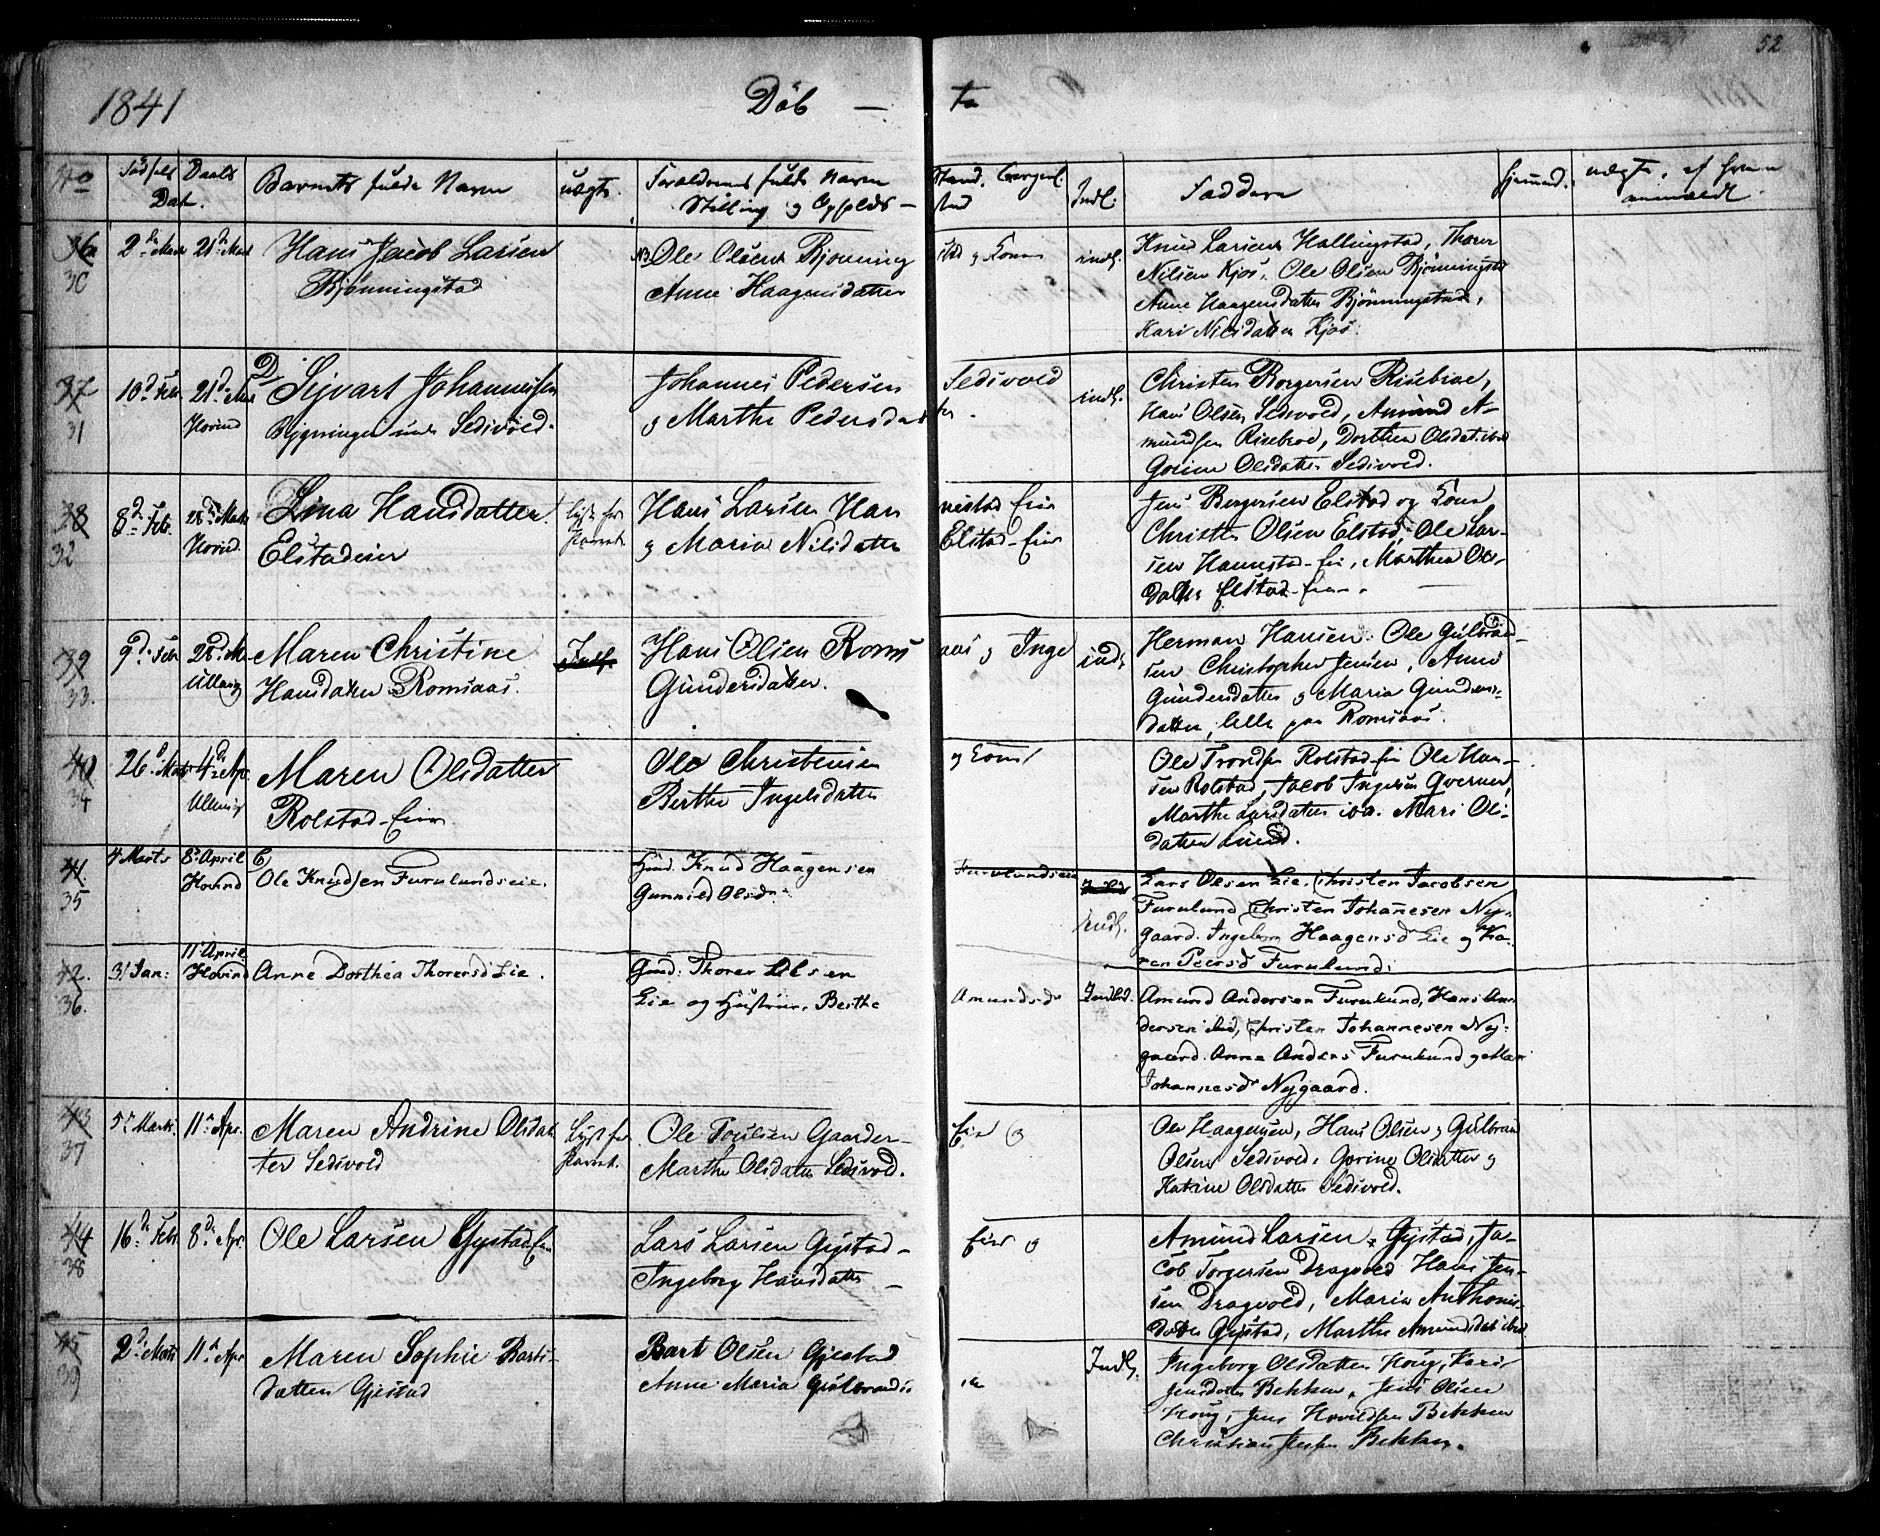 52
1841 Döb — te
No Fødsels Daabs Dat. Barnets fulde Navn uægte. Forældrenes fulde Navn Stilling og Opholds-
sted. Indl. Faddere hjemmed.
36 30 2d Marts 21d Marts
Hans Jacob Larsen
Bjønningstad
NB Ole Olsen Bjønning
Anne Haagensdatter
stad og Kone
indl.
Knud Larsen Hallingstad, Thorer
Nilsen Kjos, Ole Olsen Bjönningstd
Anne Haagensdatter Bjönningstad,
Kari Nilsdatter Kjos.
37 31 10d Feb. 21d Mar Hovind
D
Sijvart Johannessen
Bygningen under Sedivold.
Johannes Pedersen
og Marthe Pedersdat
Sedivold
ter.
indl.
Christen Borgersen Risebroe,
Hans Olsen Sedivold, Amund A-
mundsen Risebroe, Dorthea Olsdat. ibid
Gorine Olsdatter Sedivold.
38 32 8d Feb. 28d Marts Hovind
Lina Hansdatter
Elstadeier
Hans Larsen Han
og Maria Nilsdatter
nestad Eier
Elstad-Eier
Jens Borgersen Elstad og Kone
Christen Olsen Elstad, Ole Lar-
sen Hannestad-Eie, Marthea Ols-
datter Elstad-Eier.
39 33. 9d Feb. 28d M. Ullens.
Maren Christine
Hansdatter Romsaas.
Hans Olsen Roms
Gundersdatter.
aas og Inge
indl.
Herman Hansen. Ole Gulbrand-
sen Christopher Jensen, Anne
Gundersdatter og Maria Gunders-
datter, alle paa Romsaas.
40 34 26d Marts 4d Apr. Ullens.
Maren Olsdatter
Rolstad-Eier
Ole Christensen
Berthe Ingelsdatter
og Kone
Ole Trondsen Rolstad-Eie Ole Han-
sen Rolstad, Jacob Ingelsen Qverner,
Marthe Larsdatter ibd. Mari Ols-
datter Lund.
41. 35 4 Marts 8d April Hovind
Ole Knudsen Furulundseie.
Huusm. Knud Haagensen
Gunnild Olsdr
Furulundseie
Indl.
Lars Olsen Lie, Christen Jacobsen
Furulund, Christen Johanesen Ny-
gaard. Ingeborg Haagensd Lie og Ka-
ren Peersd Furulund.
42. 36. 31 Jan: 11 April Hovind
Anne Dorthea Thorersd Lie.
Gmd: Thorer Nilsen
Lie og Hustrue Berthe
Amundsdr
Indl.
Amund Andersen Furulund, Hans An-
dersen ibid, Christen Johannesen Ny-
gaard. Anne Anders Furulund og Mari
Johannesdr Nygaard.
43 37 5te Marts. 11te Apr.
Maren Andrine Olsdat
ter Sedivold
Ole Poulsen Gaarder-
Marthe Olsdatter Sedivold.
Eier og
Ole Haagensen, Hans Olsen og Gulbran
Olsen Sedivold. Gorine Olsdatter og
Katrine Olsdatter Sedivold.
44 38 16d Febr. 8d Apr.
Ole Larsen Gystad Eie
Lars Larsen Gystad-
Ingeborg Hansdatter
Eier og
Amund Larsen Gystad, Ja-
cob Torgersen Dragvold Hans Jen-
sen Dragvold, Maria Anthonis-
datter Gystad, Marthe Amundsdat ibid
45 39 2d Marts 11d Apr
Maren Sophie Bards-
datter Gjestad
Bart Olsen Gjestad
Anne Maria Gulbrands-
Indl.
Ingeborg Olsdatter Houg, Kari
Jensdatter Bekken, Jens Olsen
Houg, Jens Hovildsen Bekken
Christian Jensen Bekken.